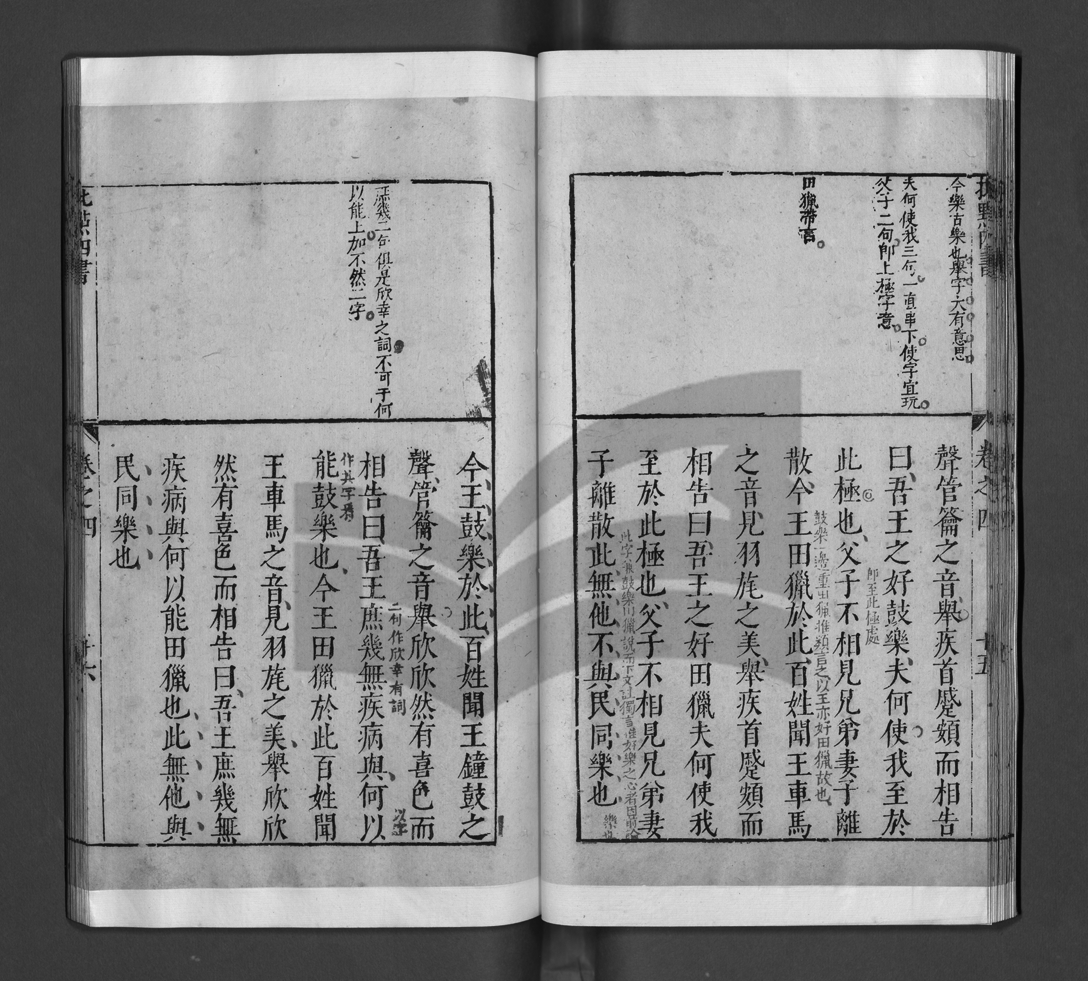 今樂古樂也舉字大有意思
夫何使我三句一直串下使字宜玩
父子二句卽上極字意
田獵帶言
卷之四
十五
聲管籥之音舉疾首蹙頞而相告
曰吾王之好鼓樂夫何使我至於
卽至此極處
此極也父子不相見兄弟妻子離
鼓樂一邊重田獵推類言之以王亦好田獵故也
散今王田獵於此百姓聞王車馬
之音見羽旄之美舉疾首蹙頞而
相告曰吾王之好田獵夫何使我
至於此極也父子不相見兄弟妻
子離散此無他不與民同樂也
庶幾二句俱是欣幸之詞不可于何
以能上加不然二字
今王鼓樂於此百姓聞王鐘鼓之
聲管籥之音舉欣欣然有喜色而
二句作欣幸有詞
相告曰吾王庶幾無疾病與何以
能鼓樂也今王田獵於此百姓聞
王車馬之音見羽旄之美舉欣欣
然有喜色而相告曰吾王庶幾無
疾病與何以能田獵也此無他與
民同樂也
點四書
卷之四
十六